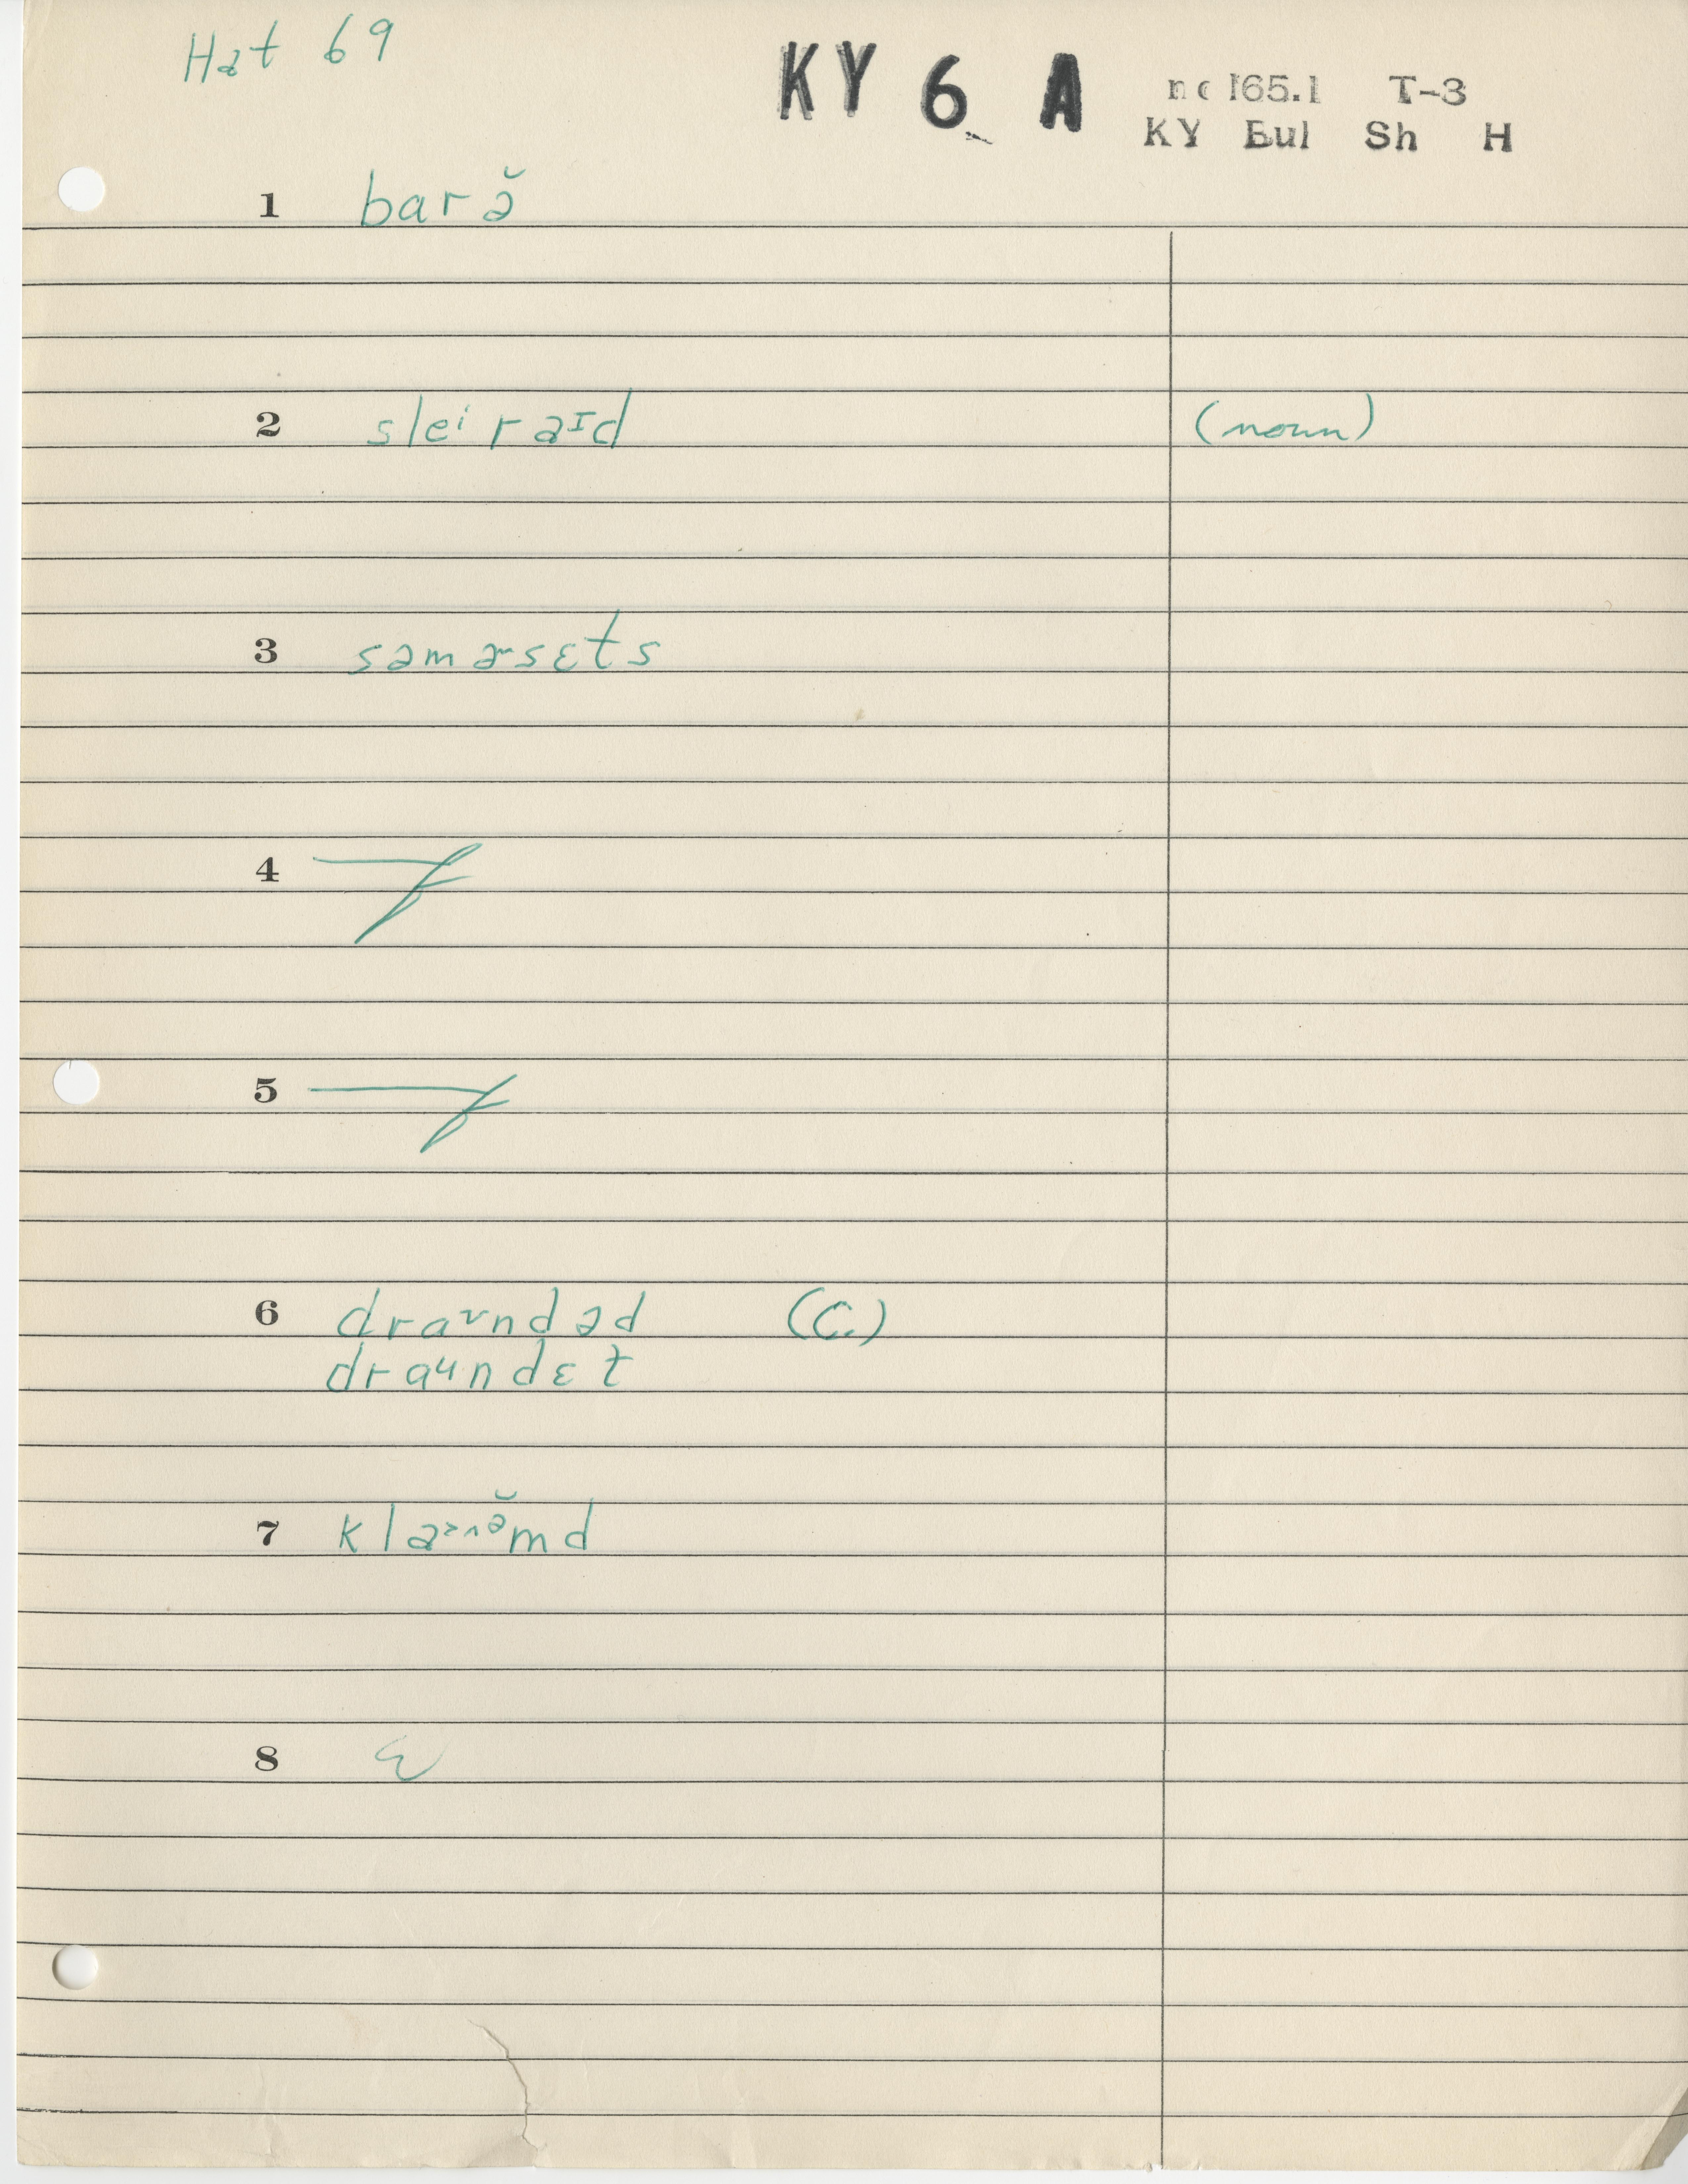 Hat 69
KY 6 A
nc 165.1 T-3
KY Bul Sh H
1 barə̆
2 sleⁱ raᶦd (noun)
3 səmɚsɛts
4
5
6 draᶷndəd (C.)
draᶣndɛt
7
8